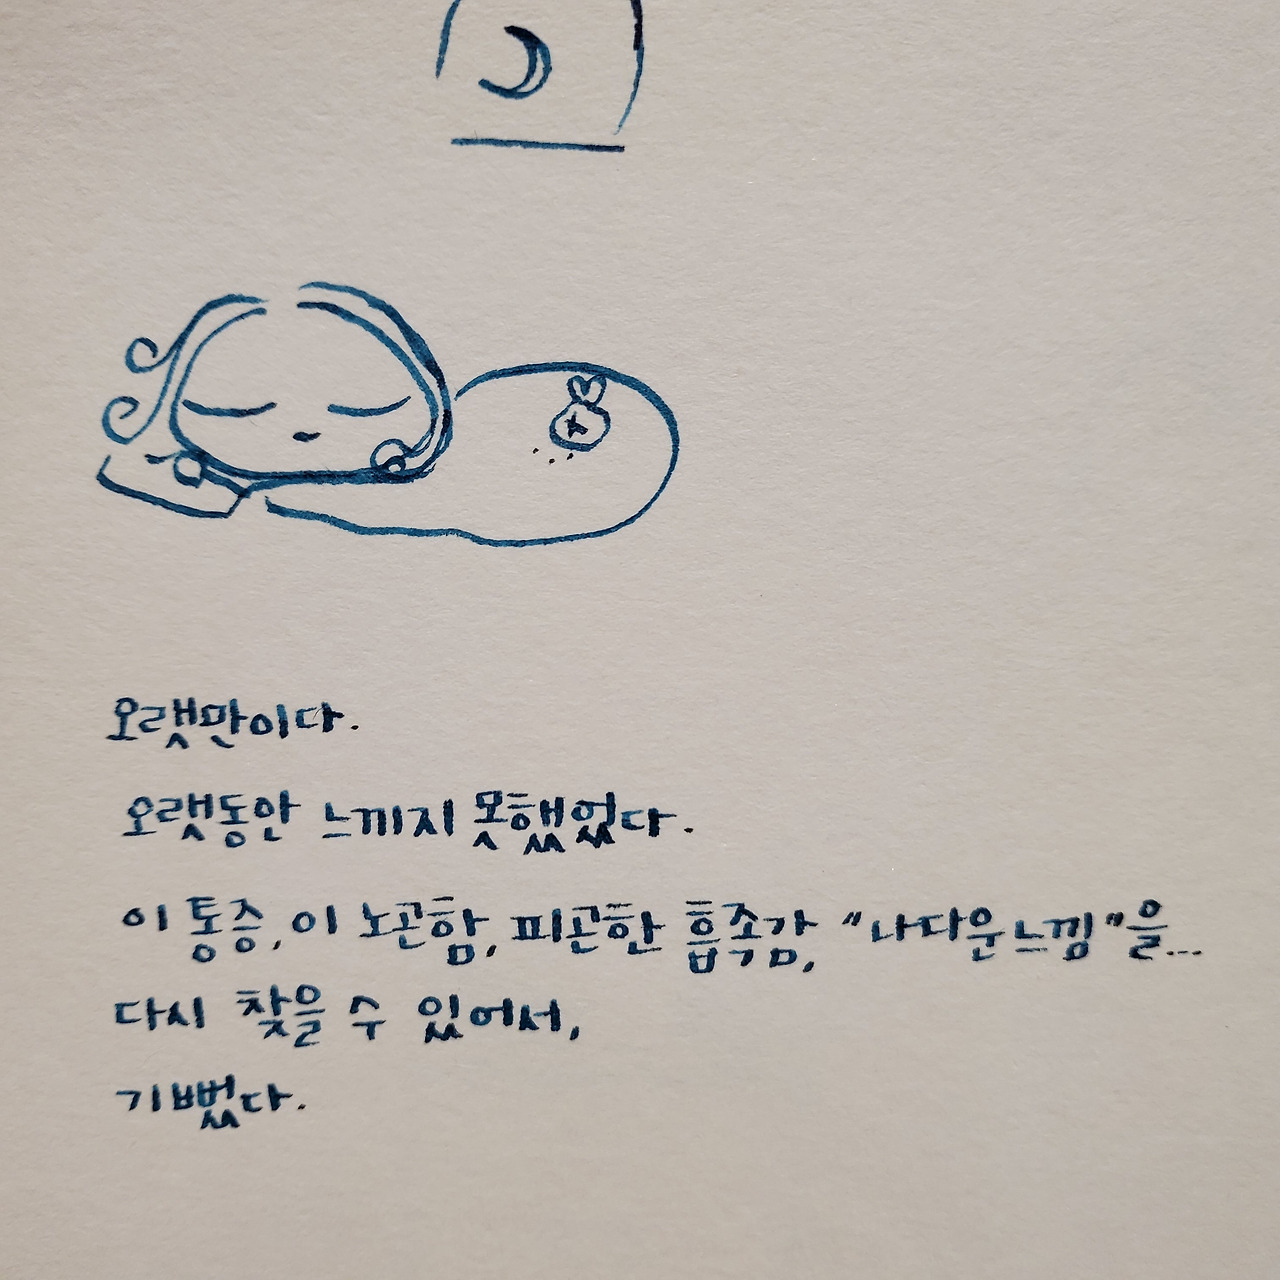 오랫만이다.
오랫동안 느끼지 못했었다.
이 통증, 이 노곤함, 피곤한 흡족감, "나다운느낌"을...
다시 찾을 수 있어서,
기뻤다.